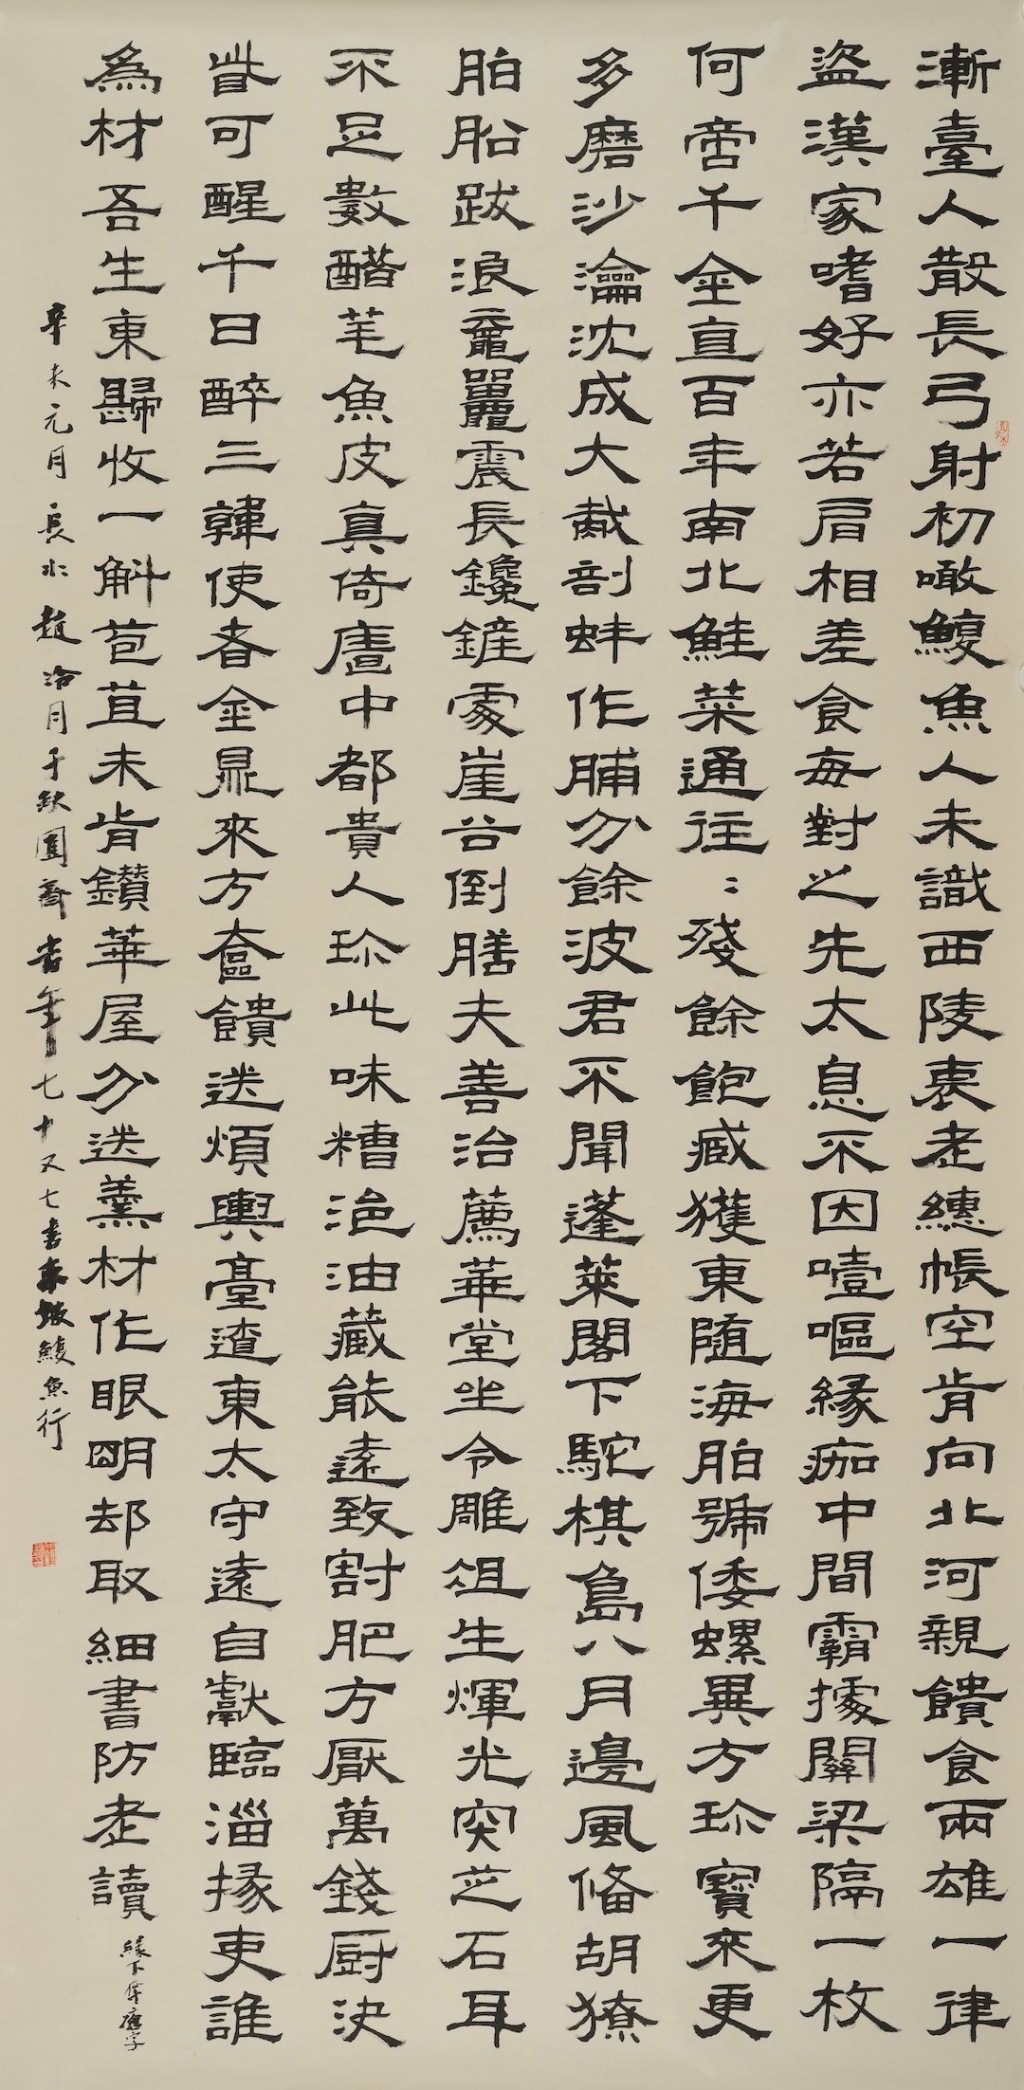 漸臺人散長弓射初噉鰒魚人未識西陵衰老繐帳空肯向北河親饋食兩雄一律
盜漢家嗜好亦若肩相差食每對之先太息不因噎嘔緣痂中間霸據關梁隔一枚
何啻千金直百年南北鮭菜通往〻殘餘飽臧獲東隨海舶號倭螺異方珍寶來更
多磨沙瀹沈成大胾剖蚌作脯分餘波君不聞蓬萊閣下駝棋島八月邊風備胡獠
舶船跋浪黿鼉震長鑱鏟處崖谷倒膳夫善治薦華堂坐令雕俎生輝光肉芝石耳
不足數醋芼魚皮真倚牆中都貴人珍此味糟浥油藏能遠致割肥方厭萬錢厨決
眥可醒千日醉三韓使者金鼎來方奩饋送煩輿臺遼東太守遠自獻臨淄掾吏誰
為材吾生東歸收一斛苞苴未肯鑽華屋分送羹材作眼明却取細書防老讀
緣下奪瘡字
辛未元月長水趙冷月于缺圓齋旹年七十又七書東坡鰒魚行